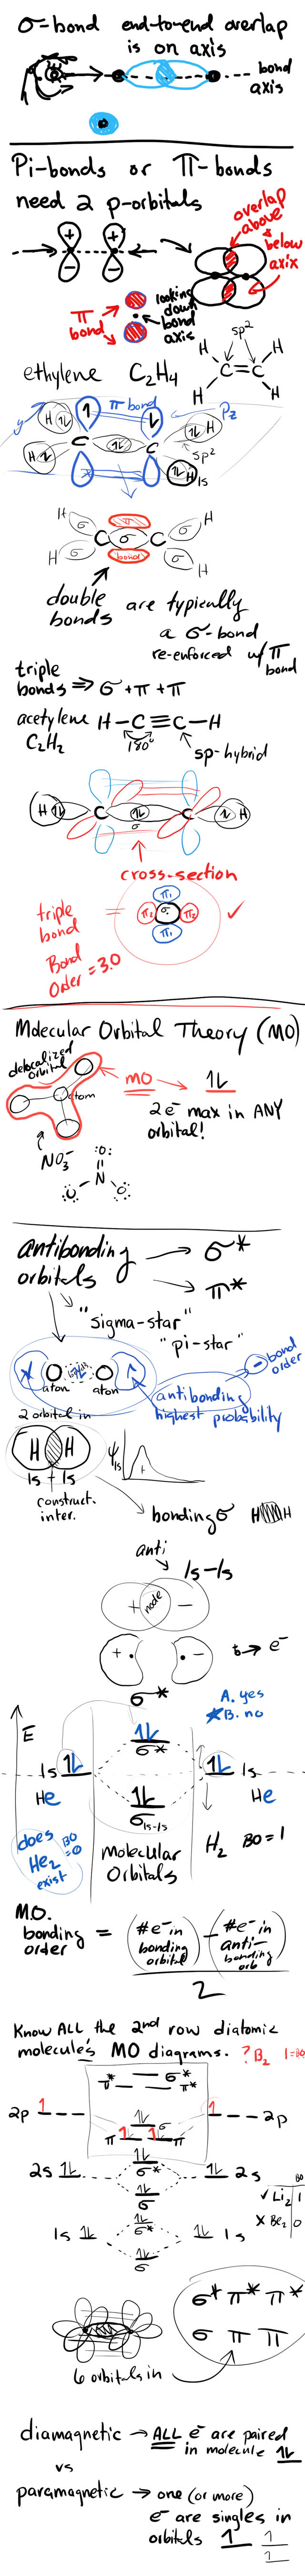 σ-bond end-to-end overlap
is on axis
bond
axis
Pi-bonds or π-bonds
need 2 p-orbitals
overlap
above
+
below
axix
+ +
- -
π
bond
looking
down
bond
axis
sp²
H H
C=C
H H
ethylene C₂H₄
y
π bond
Pz
H 1 1 H
C 1 C
sp²
H 1 1 H
1s
H σ π σ H
C σ C
H σ bond σ H
double
bonds are typically
a σ-bond
re-enforced w/ π
bond
triple
bonds ⇒ σ+π+π
acetylene H-C≡C-H
C₂H₂
180°
sp-hybrid
H C σ C H
cross-section
triple
bond =
π₁
π₂ σ π₂
π₁
✓
Bond
Order = 3.0
Molecular Orbital Theory (MO)
delocalized
orbital
atom
MO → 1L
2e⁻ max in ANY
orbital!
NO₃⁻
:O:
N
O O
antibonding → σ*
orbitals → π*
"sigma-star"
"pi-star"
- bond
order
atom atom
antibonding
highest probability
2 orbital in
H H
1s + 1s
construct.
inter.
ψ1s
+
bonding σ H H
anti
1s-1s
+ node -
+ . . -
σ*
→ e⁻
A. yes
★B. no
E
1s 1L
He
1L
σ*
1L 1s
He
1L
σ1s-1s
does
He₂
exist
BO
=0
Molecular
Orbitals
H₂ BO=1
M.O.
bonding
order = (#e⁻ in bonding orbital) - (#e⁻ in anti-bonding orb)
2
Know ALL the 2nd row diatomic
molecule's MO diagrams. ? B₂ 1=BO
σ*
π* π*
2p 1 1 2p
1L σ
π 1 1 π
2s 1L 1L 2s
1L
σ*
1L
σ
BO
✓ Li₂ 1
X Be₂ 0
1s 1L 1L 1s
1L
σ*
1L
σ
σ* π* π*
σ π π
6 orbitals in
diamagnetic → ALL e⁻ are paired
in molecule 1L
vs
paramagnetic → one (or more)
e⁻ are singles in
orbitals 1 1
1